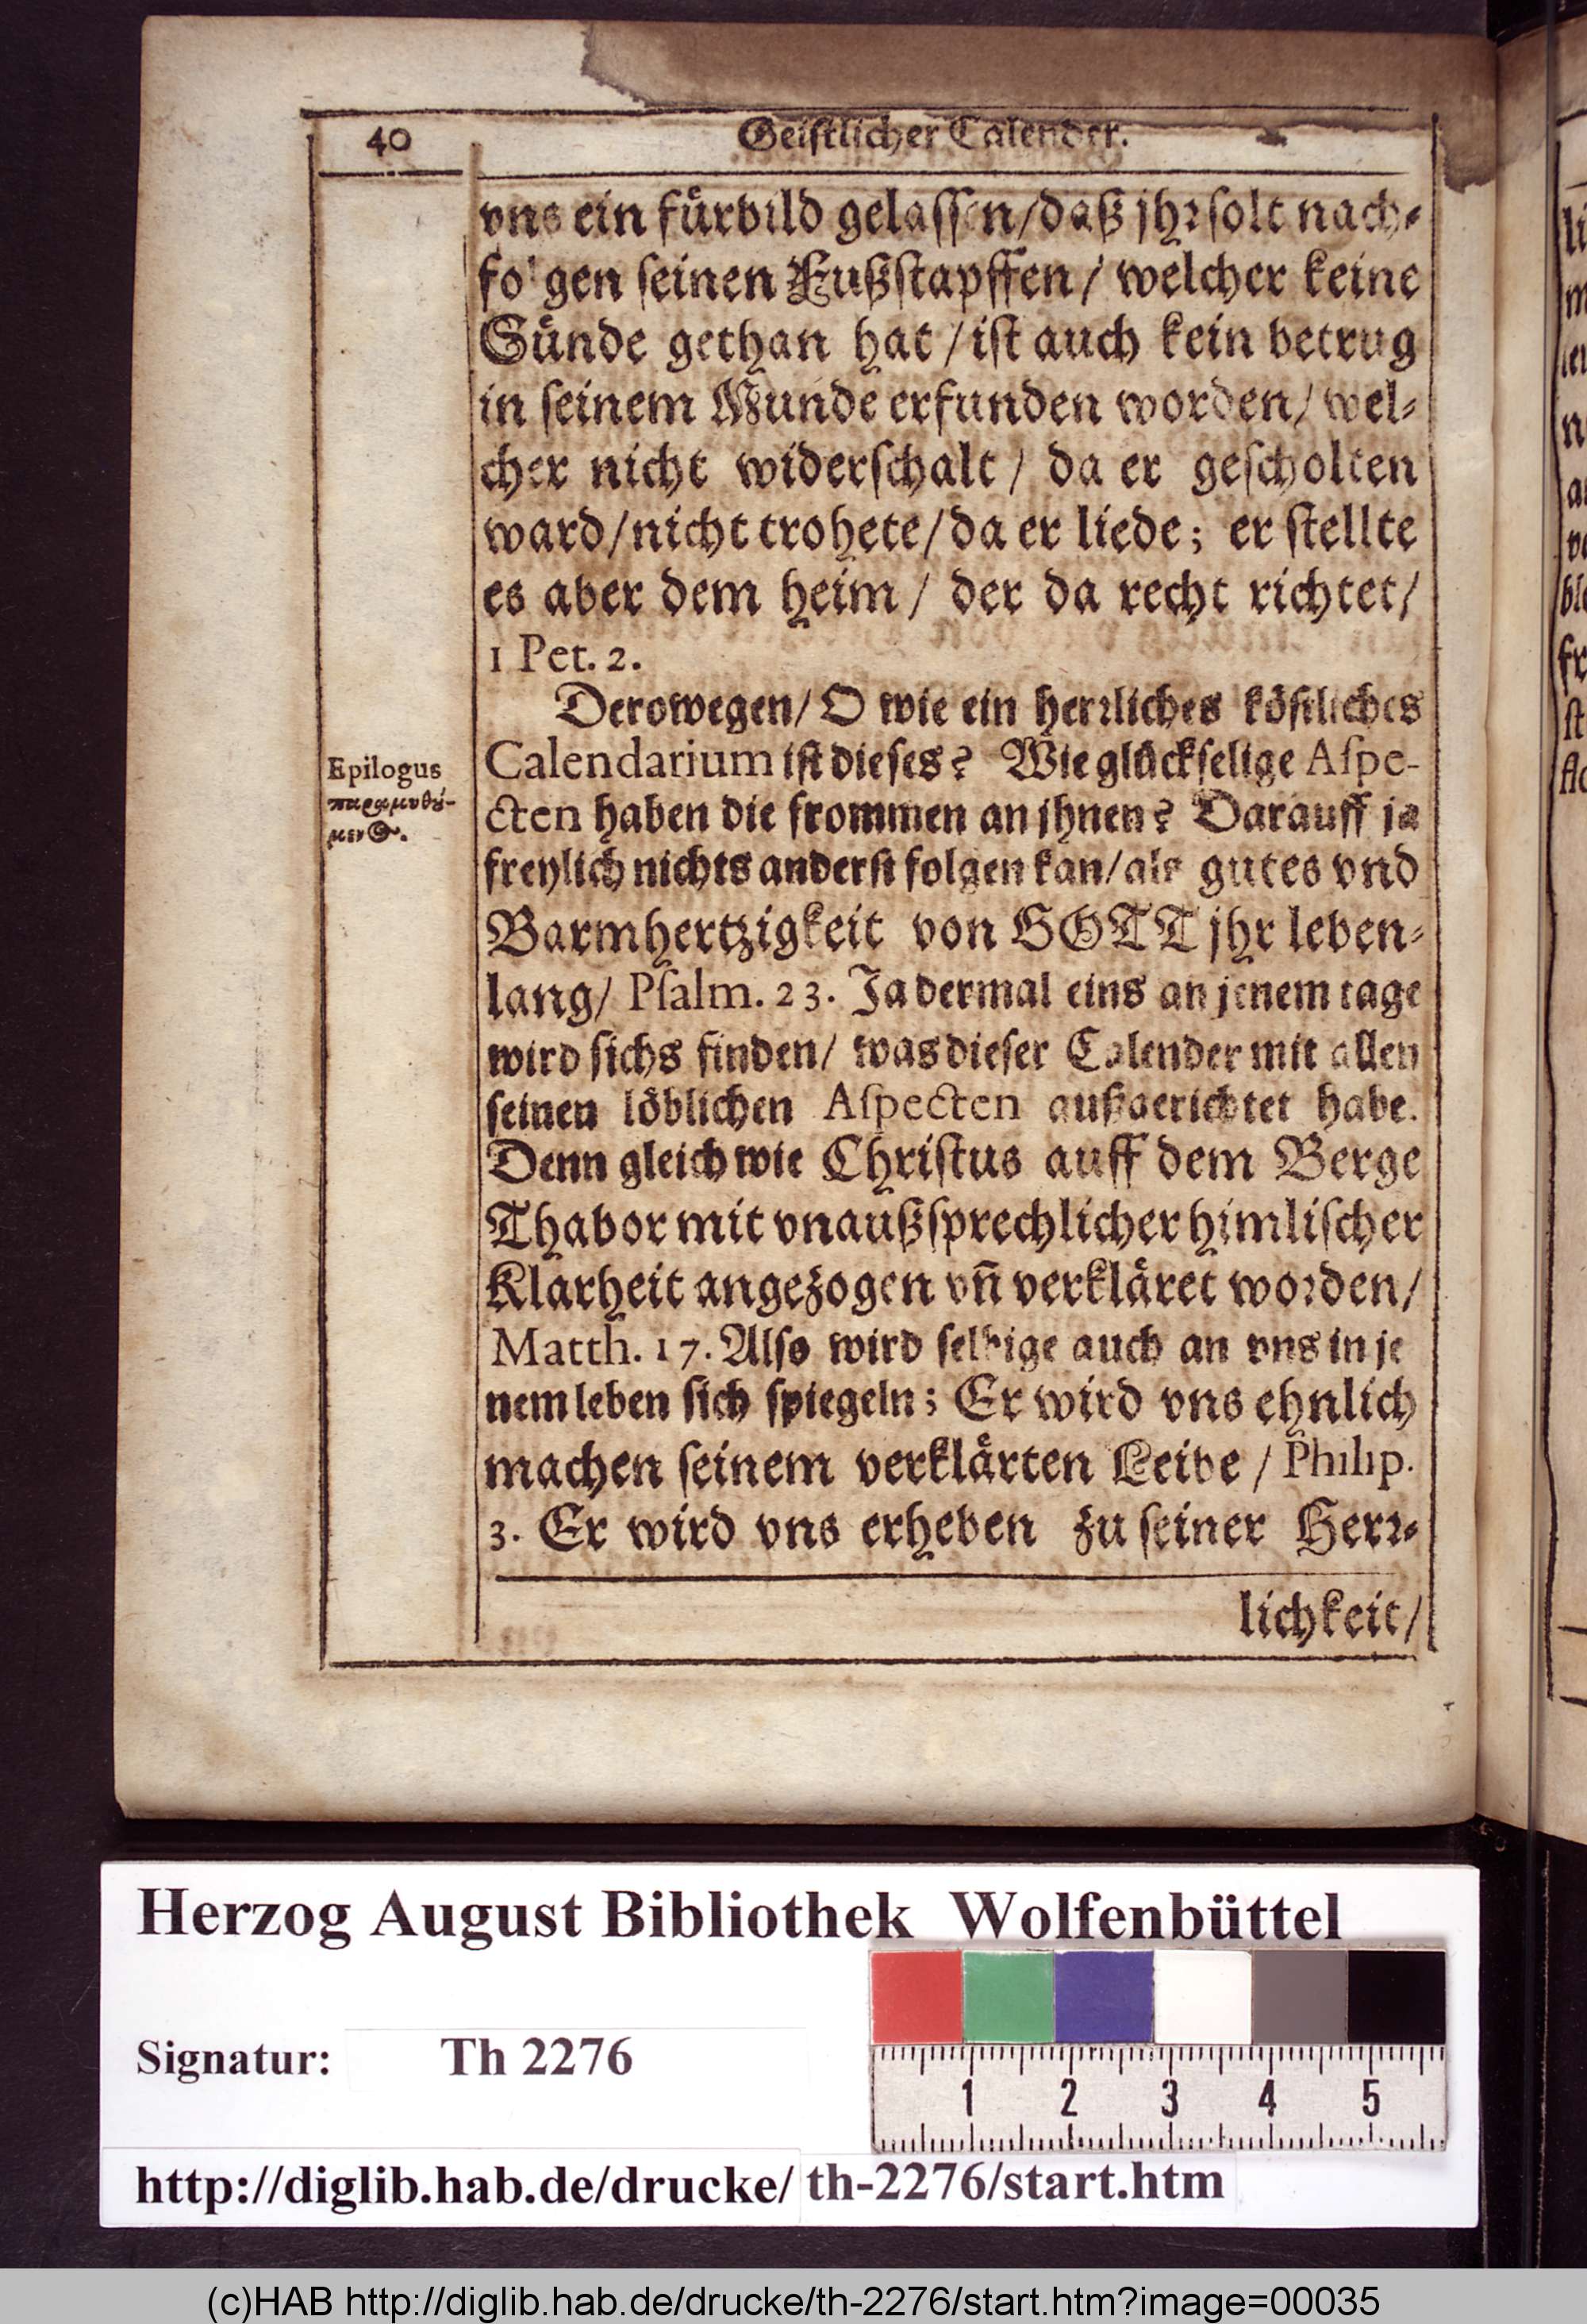 40
Geistlicher Calender.
vns ein fürbild gelassen/daß jhr solt nach-
folgen seinen Fußstapffen/ welcher keine
Sünde gethan hat/ist auch kein betrug
in seinem Munde erfunden worden/ wel-
cher nicht widerschalt/ da er gescholten
ward/nicht trohete/da er liede; er stellte
es aber dem heim/ der da recht richtet/
1 Pet. 2.
Derowegen/ O wie ein herrliches köstliches
Calendarium ist dieses? Wie glückselige Aspe-
cten haben die frommen an jhnen? Darauff ja
freylich nichts anderst folgen kan/als gutes vnd
Barmhertzigkeit von GOTT jhr leben-
lang/ Psalm. 23. Ja dermal eins an jenem tage
wird sichs finden/ was dieser Calender mit allen
seinen löblichen Aspecten außgerichtet habe.
Denn gleich wie Christus auff dem Berge
Thabor mit vnaußsprechlicher himlischer
Klarheit angezogen vñ verkläret worden/
Matth. 17. Also wird selbige auch an vns in je
nem leben sich spiegeln; Er wird vns ehnlich
machen seinem verklärten Leibe/ Philip.
3. Er wird vns erheben zu seiner Herr-
lichkeit/
Epilogus
Herzog August Bibliothek Wolfenbüttel
Signatur: Th 2276
1 2 3 4 5
http://diglib.hab.de/drucke/ th-2276/start.htm
(c)HAB http://diglib.hab.de/drucke/th-2276/start.htm?image=00035